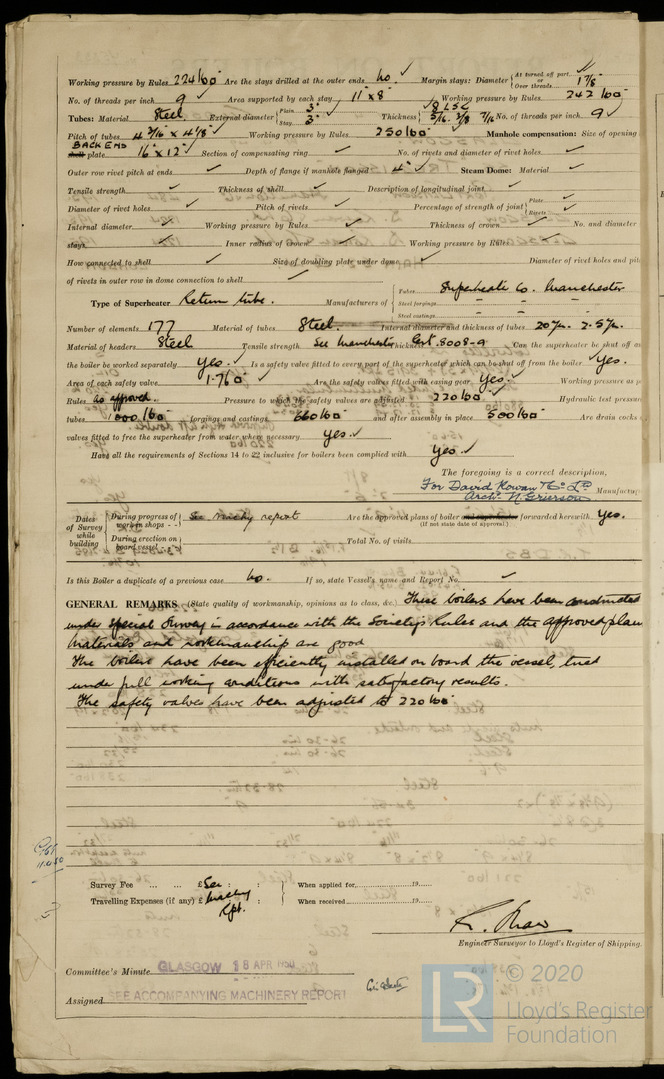 Working pressure by Rules 224 lbs Are the stays drilled at the outer ends No ✓ Margin stays: Diameter { At turned off part, or Over threads 1 7/8" ✓
No. of threads per inch 9 ✓ Area supported by each stay 11" x 8" ✓ Working pressure by Rules 242 lbs
Tubes: Material Steel External diameter { Plain 3" Stay 3" ✓ Thickness { 8 LSG 5/16 3/8 7/16 No. of threads per inch 9 ✓
Pitch of tubes 4 3/16" x 4 1/8" ✓ Working pressure by Rules 250 lbs Manhole compensation: Size of opening
BACK ENDS
shell plate 16" x 12" ✓ Section of compensating ring ✓ No. of rivets and diameter of rivet holes ✓
Outer row rivet pitch at ends ✓ Depth of flange if manhole flanged 4" ✓ Steam Dome: Material ✓
Tensile strength ✓ Thickness of shell ✓ Description of longitudinal joint ✓
Diameter of rivet holes ✓ Pitch of rivets ✓ Percentage of strength of joint { Plate ✓ Rivets ✓
Internal diameter ✓ Working pressure by Rules ✓ Thickness of crown ✓ No. and diameter
stays ✓ Inner radius of crown ✓ Working pressure by Rules ✓
How connected to shell ✓ Size of doubling plate under dome ✓ Diameter of rivet holes and pit
of rivets in outer row in dome connection to shell ✓
Type of Superheater Return tube. Manufacturers of { Tubes Superheater Co. Manchester
Steel forgings " " "
Steel castings " " "
Number of elements 177 Material of tubes Steel Internal diameter and thickness of tubes 20 m/m. 2.5 m/m.
Material of headers Steel Tensile strength See Manchester Thickness Cert. 8008-9 Can the superheater be shut off a
the boiler be worked separately Yes. ✓ Is a safety valve fitted to every part of the superheater which can be shut off from the boiler Yes.
Area of each safety valve 1.76" ✓ Are the safety valves fitted with easing gear Yes. ✓ Working pressure as p
Rules as approved. Pressure to which the safety valves are adjusted 220 lbs ✓ Hydraulic test pressure
tubes 1000 lbs forgings and castings 660 lbs and after assembly in place 500 lbs Are drain cocks
valves fitted to free the superheater from water where necessary Yes. ✓
Have all the requirements of Sections 14 to 22 inclusive for boilers been complied with Yes. ✓
The foregoing is a correct description,
For David Rowan & Co. Ltd
Arch. N. Grierson Manufactur
Dates of Survey while building { During progress of work in shops - - See Machy report Are the approved plans of boiler forwarded herewith Yes.
(If not state date of approval)
During erection on board vessel Total No. of visits
Is this Boiler a duplicate of a previous case No. If so, state Vessel's name and Report No. ✓
GENERAL REMARKS (State quality of workmanship, opinions as to class, &c.) These boilers have been constructed
under Special Survey in accordance with the Society's Rules and the Approved plan
Materials and workmanship are good
The boilers have been efficiently installed on board the vessel, tried
under full working conditions with satisfactory results.
The safety valves have been adjusted to 220 lbs
Survey Fee ... ... £ See : : When applied for, 19
Travelling Expenses (if any) £ Machy Rpt. : When received 19
Engineer Surveyor to Lloyd's Register of Shipping.
Committee's Minute GLASGOW 18 APR 1950
Assigned SEE ACCOMPANYING MACHINERY REPORT
LR © 2020
Lloyd's Register
Foundation